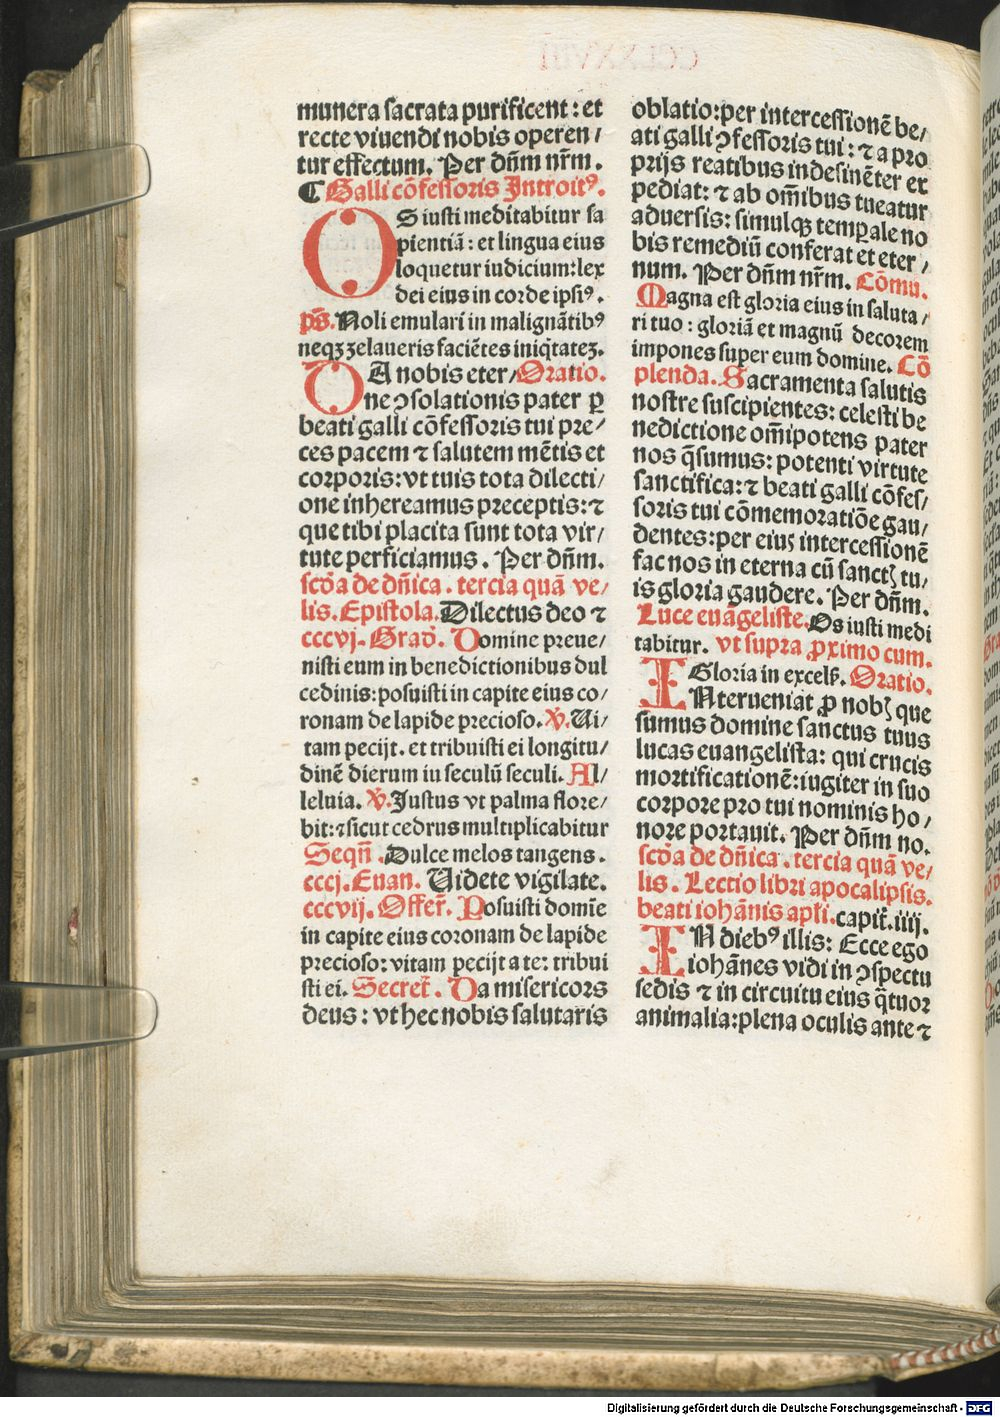 munera sacrata purificent: et
recte viuendi nobis operen/
tur effectum. Per dñm nr̃m.
¶ Galli cõfessoris Introitꝰ.
OS iusti meditabitur sa
pientiã: et lingua eius
loquetur iudicium: lex
dei eius in corde ipsiꝰ.
pš. Noli emulari in malignãtibꝰ
neqꝫ zelaueris faciẽtes iniq̃tateꝫ.
DA nobis eter/ Oratio.
ne ↄsolationis pater ꝑ
beati galli cõfessoris tui pre/
ces pacem ⁊ salutem mẽtis et
corporis: vt tuis tota dilecti/
one inhereamus preceptis: ⁊
que tibi placita sunt tota vir/
tute perficiamus. Per dñm.
scđa de dñica. tercia quã ve/
lis. Epistola. Dilectus deo ⁊
cccvj. Građ. Domine preue/
nisti eum in benedictionibus dul
cedinis: posuisti in capite eius co/
ronam de lapide precioso. ℣. Ui/
tam pecijt. et tribuisti ei longitu/
dinẽ dierum iu seculũ seculi. Al/
leluia. ℣. Justus vt palma flore/
bit: ⁊ sicut cedrus multiplicabitur
Seqñ. Dulce melos tangens.
cccj. Euan. Uidete vigilate.
cccvij. Offer̃. Posuisti domĩe
in capite eius coronam de lapide
precioso: vitam pecijt a te: tribui
sti ei. Secret̃. Da misericors
deus: vt hec nobis salutaris
oblatio: per intercessionẽ be/
ati galli ↄfessoris tui: ⁊ a pro
prijs reatibus indesinẽter ex
pediat: ⁊ ab om̃ibus tueatur
aduersis: simulqꝫ temꝑale no
bis remediũ conferat et eter/
num. Per dñm nr̃m. Cõmu.
Magna est gloria eius in saluta/
ri tuo: gloriã et magnũ decorem
impones super eum domine. Cõ
plenda. Sacramenta salutis
nostre suscipientes: celesti be
nedictione om̃ipotens pater
nos q̃sumus: potenti virtute
sanctifica: ⁊ beati galli cõfes/
soris tui cõmemoratiõe gau/
dentes: per eiuς intercessionẽ
fac nos in eterna cũ sanctꝭ tu/
is gloria gaudere. Per dñm.
Luce euãgeliste. Os iusti medi
tabitur. vt supra ꝓximo cum.
Gloria in excelš. Oratio.
INterueniat ꝓ nobꝭ que
sumus domine sanctus tuus
lucas euangelista: qui crucis
mortificationẽ: iugiter in suo
corpore pro tui nominis ho/
nore portauit. Per dñm no.
scđa de dñica. tercia quã ve/
lis. Lectio libri apocalipsis.
beati iohãnis apłi. capit̃. iiij.
IN diebꝰ illis: Ecce ego
iohãnes vidi in ↄspectu
sedis ⁊ in circuitu eius q̃tuor
animalia: plena oculis ante ⁊
Digitalisierung gefördert durch die Deutsche Forschungsgemeinschaft - DFG